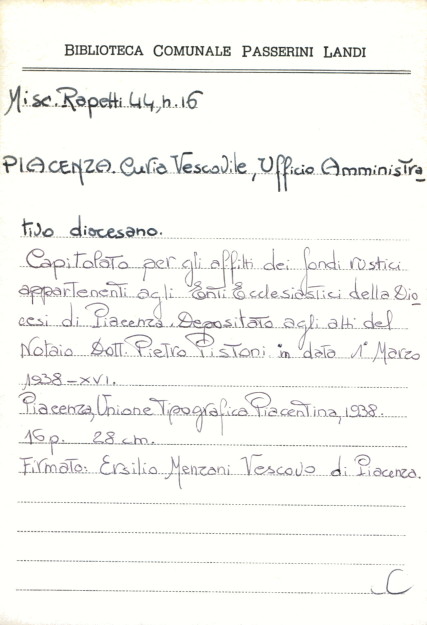 BIBLIOTECA COMUNALE PASSERINI LANDI
Misc. Rapetti 44, n. 16
PIACENZA. Curia Vescovile, Ufficio Amministra
tivo diocesano.
Capitolato per gli affitti dei fondi rustici
appartenenti agli Enti Ecclesiastici della Dio
cesi di Piacenza. Depositato agli atti del
Notaio Dott. Pietro Pistoni in data 1° Marzo
1938-XVI.
Piacenza, Unione Tipografica Piacentina, 1938.
16 p. 28 cm.
Firmato: Ersilio Menzani Vescovo di Piacenza.
C